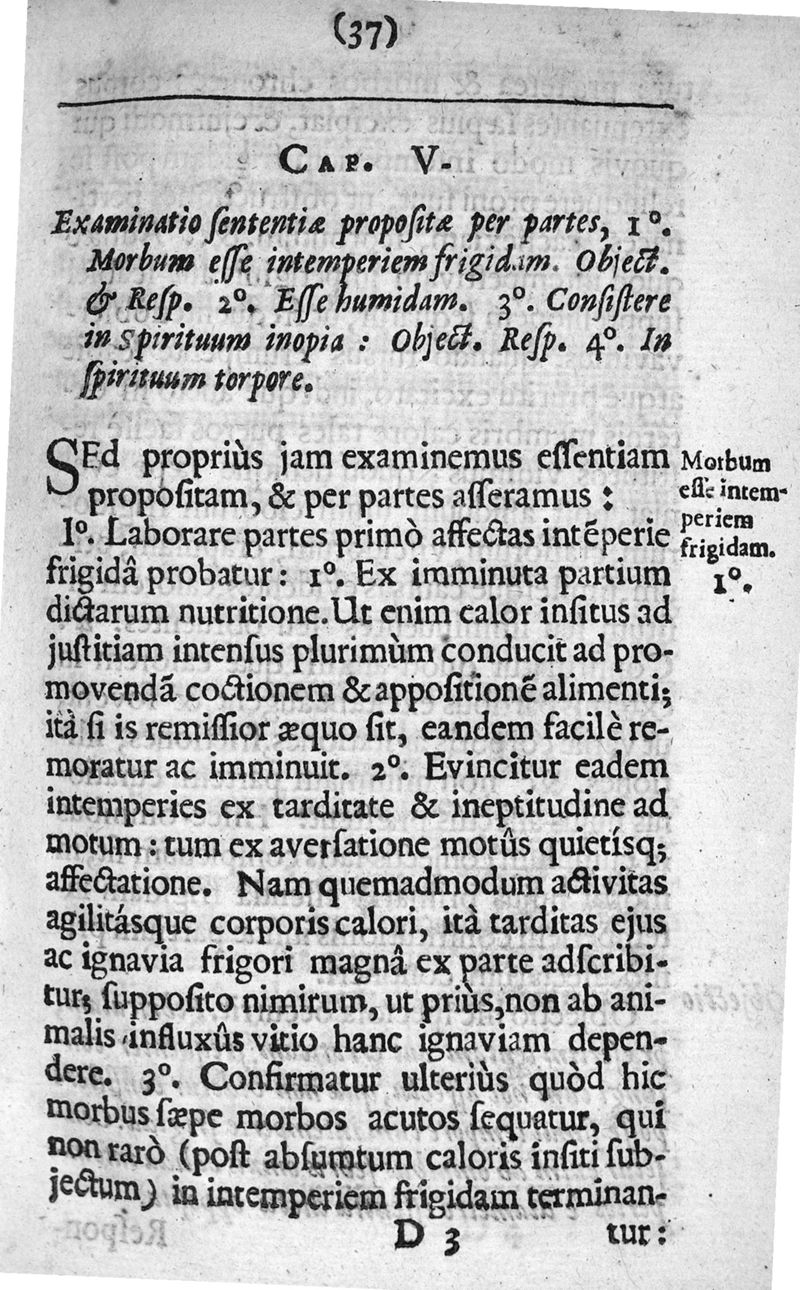 (37)
CAP. V.
Examinatio ſententiæ propoſitæ per partes, 1º.
Morbum eſſe intemperiem frigidam. Object.
& Reſp. 2º. Eſſe humidam. 3º. Conſiſtere
in Spirituum inopia : Object. Reſp. 4º. In
ſpirituum torpore.
SEd propriùs jam examinemus eſſentiam
propoſitam, & per partes aſſeramus :
Iº. Laborare partes primò affectas intẽperie
frigidâ probatur : 1º. Ex imminuta partium
dictarum nutritione. Ut enim calor inſitus ad
juſtitiam intenſus plurimùm conducit ad pro-
movendã coctionem & appoſitionẽ alimenti;
ità ſi is remiſſior æquo ſit, eandem facilè re-
moratur ac imminuit. 2º. Evincitur eadem
intemperies ex tarditate & ineptitudine ad
motum : tum ex averſatione motûs quietísq;
affectatione. Nam quemadmodum activitas
agilitásque corporis calori, ità tarditas ejus
ac ignavia frigori magnâ ex parte adſcribi-
tur; ſuppoſito nimirum, ut priùs, non ab ani-
malis influxûs vitio hanc ignaviam depen-
dere. 3º. Confirmatur ulteriùs quòd hic
morbus ſæpe morbos acutos ſequatur, qui
non rarò (poſt abſumtum caloris inſiti ſub-
jectum) in intemperiem frigidam terminan-
D 3 tur :
Morbum
eſſe intem-
periem
frigidam.
1º.